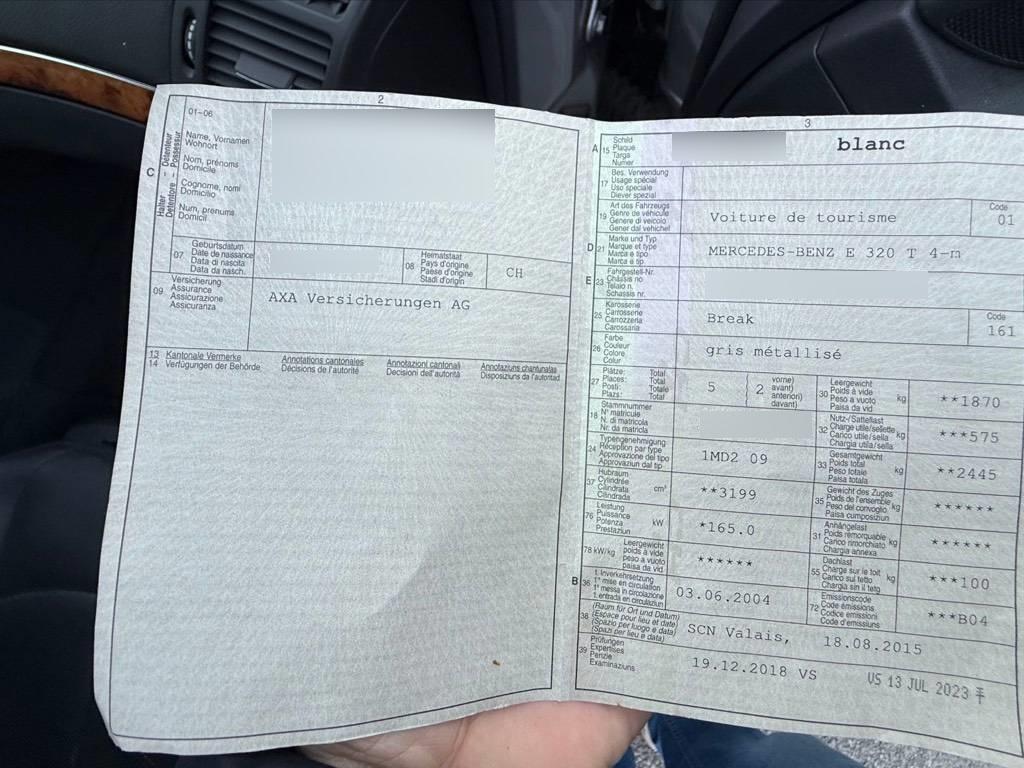 2
01-06
Halter - Détenteur
Detentore - Possessur
C
Name, Vornamen
Wohnort
Nom, prénoms
Domicile
Cognome, nomi
Domicilio
Num, prenums
Domicil
07
Geburtsdatum
Date de naissance
Data di nascita
Data da nasch.
08
Heimatstaat
Pays d'origine
Paese d'origine
Stadi d'origin
CH
09
Versicherung
Assurance
Assicurazione
Assicuranza
AXA Versicherungen AG
13 Kantonale Vermerke Annotations cantonales Annotazioni cantonali Annotaziuns chantunalas
14 Verfügungen der Behörde Décisions de l'autorité Decisioni dell'autorità Disposiziuns da l'autoritad
3
A 15
Schild
Plaque
Targa
Numer
blanc
17
Bes. Verwendung
Usage spécial
Uso speciale
Diever spezial
19
Art des Fahrzeugs
Genre de véhicule
Genere di veicolo
Gener dal vehichel
Voiture de tourisme
Code
01
D 21
Marke und Typ
Marque et type
Marca e tipo
Marca e tip
MERCEDES-BENZ E 320 T 4-m
E 23
Fahrgestell-Nr.
Châssis no
Telaio n.
Schassis nr.
25
Karosserie
Carrosserie
Carrozzeria
Carossaria
Break
Code
161
26
Farbe
Couleur
Colore
Colur
gris métallisé
27
Plätze: Total
Places: Total
Posti: Totale
Plazs: Total
5
2
vorne)
avant)
anteriori)
davant)
30
Leergewicht
Poids à vide
Peso a vuoto
Paisa da vid
kg
**1870
18
Stammnummer
N° matricule
N. di matricola
Nr. da matricla
32
Nutz-/Sattellast
Charge utile/sellette
Carico utile/sella
Chargia utila/sella
kg
***575
24
Typengenehmigung
Réception par type
Approvazione del tipo
Approvaziun dal tip
1MD2 09
33
Gesamtgewicht
Poids total
Peso totale
Paisa totala
kg
**2445
37
Hubraum
Cylindrée
Cilindrata
Cilindrada
cm³
**3199
35
Gewicht des Zuges
Poids de l'ensemble
Peso del convoglio
Paisa cumposiziun
kg
******
76
Leistung
Puissance
Potenza
Prestaziun
kW
*165.0
31
Anhängelast
Poids remorquable
Carico rimorchiato
Chargia annexa
kg
******
78 kW/kg
Leergewicht
poids à vide
peso a vuoto
paisa da vid
******
55
Dachlast
Charge sur le toit
Carico sul tetto
Chargia sin il tetg
kg
***100
B 36
1. Inverkehrsetzung
1re mise en circulation
1a messa in circolazione
1. entrada en circulaziun
03.06.2004
72
Emissionscode
Code émissions
Codice emissioni
Code d'emissiuns
***B04
38
(Raum für Ort und Datum)
(Espace pour lieu et date)
(Spazio per luogo e data)
(Spazi per lieu e data)
SCN Valais, 18.08.2015
39
Prüfungen
Expertises
Perizie
Examinaziuns
19.12.2018 VS
VS 13 JUL 2023